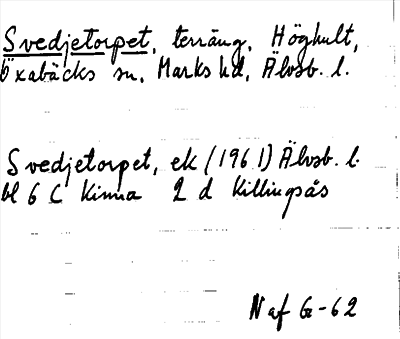 Svedjetorpet, terräng, Höghult,
Öxabäcks sn, Marks hd, Älvsb. l.
Svedjetorpet, ek (1961) Älvsb. l.
bl 6 C Kinna 2 d Killingsås
N af G-62